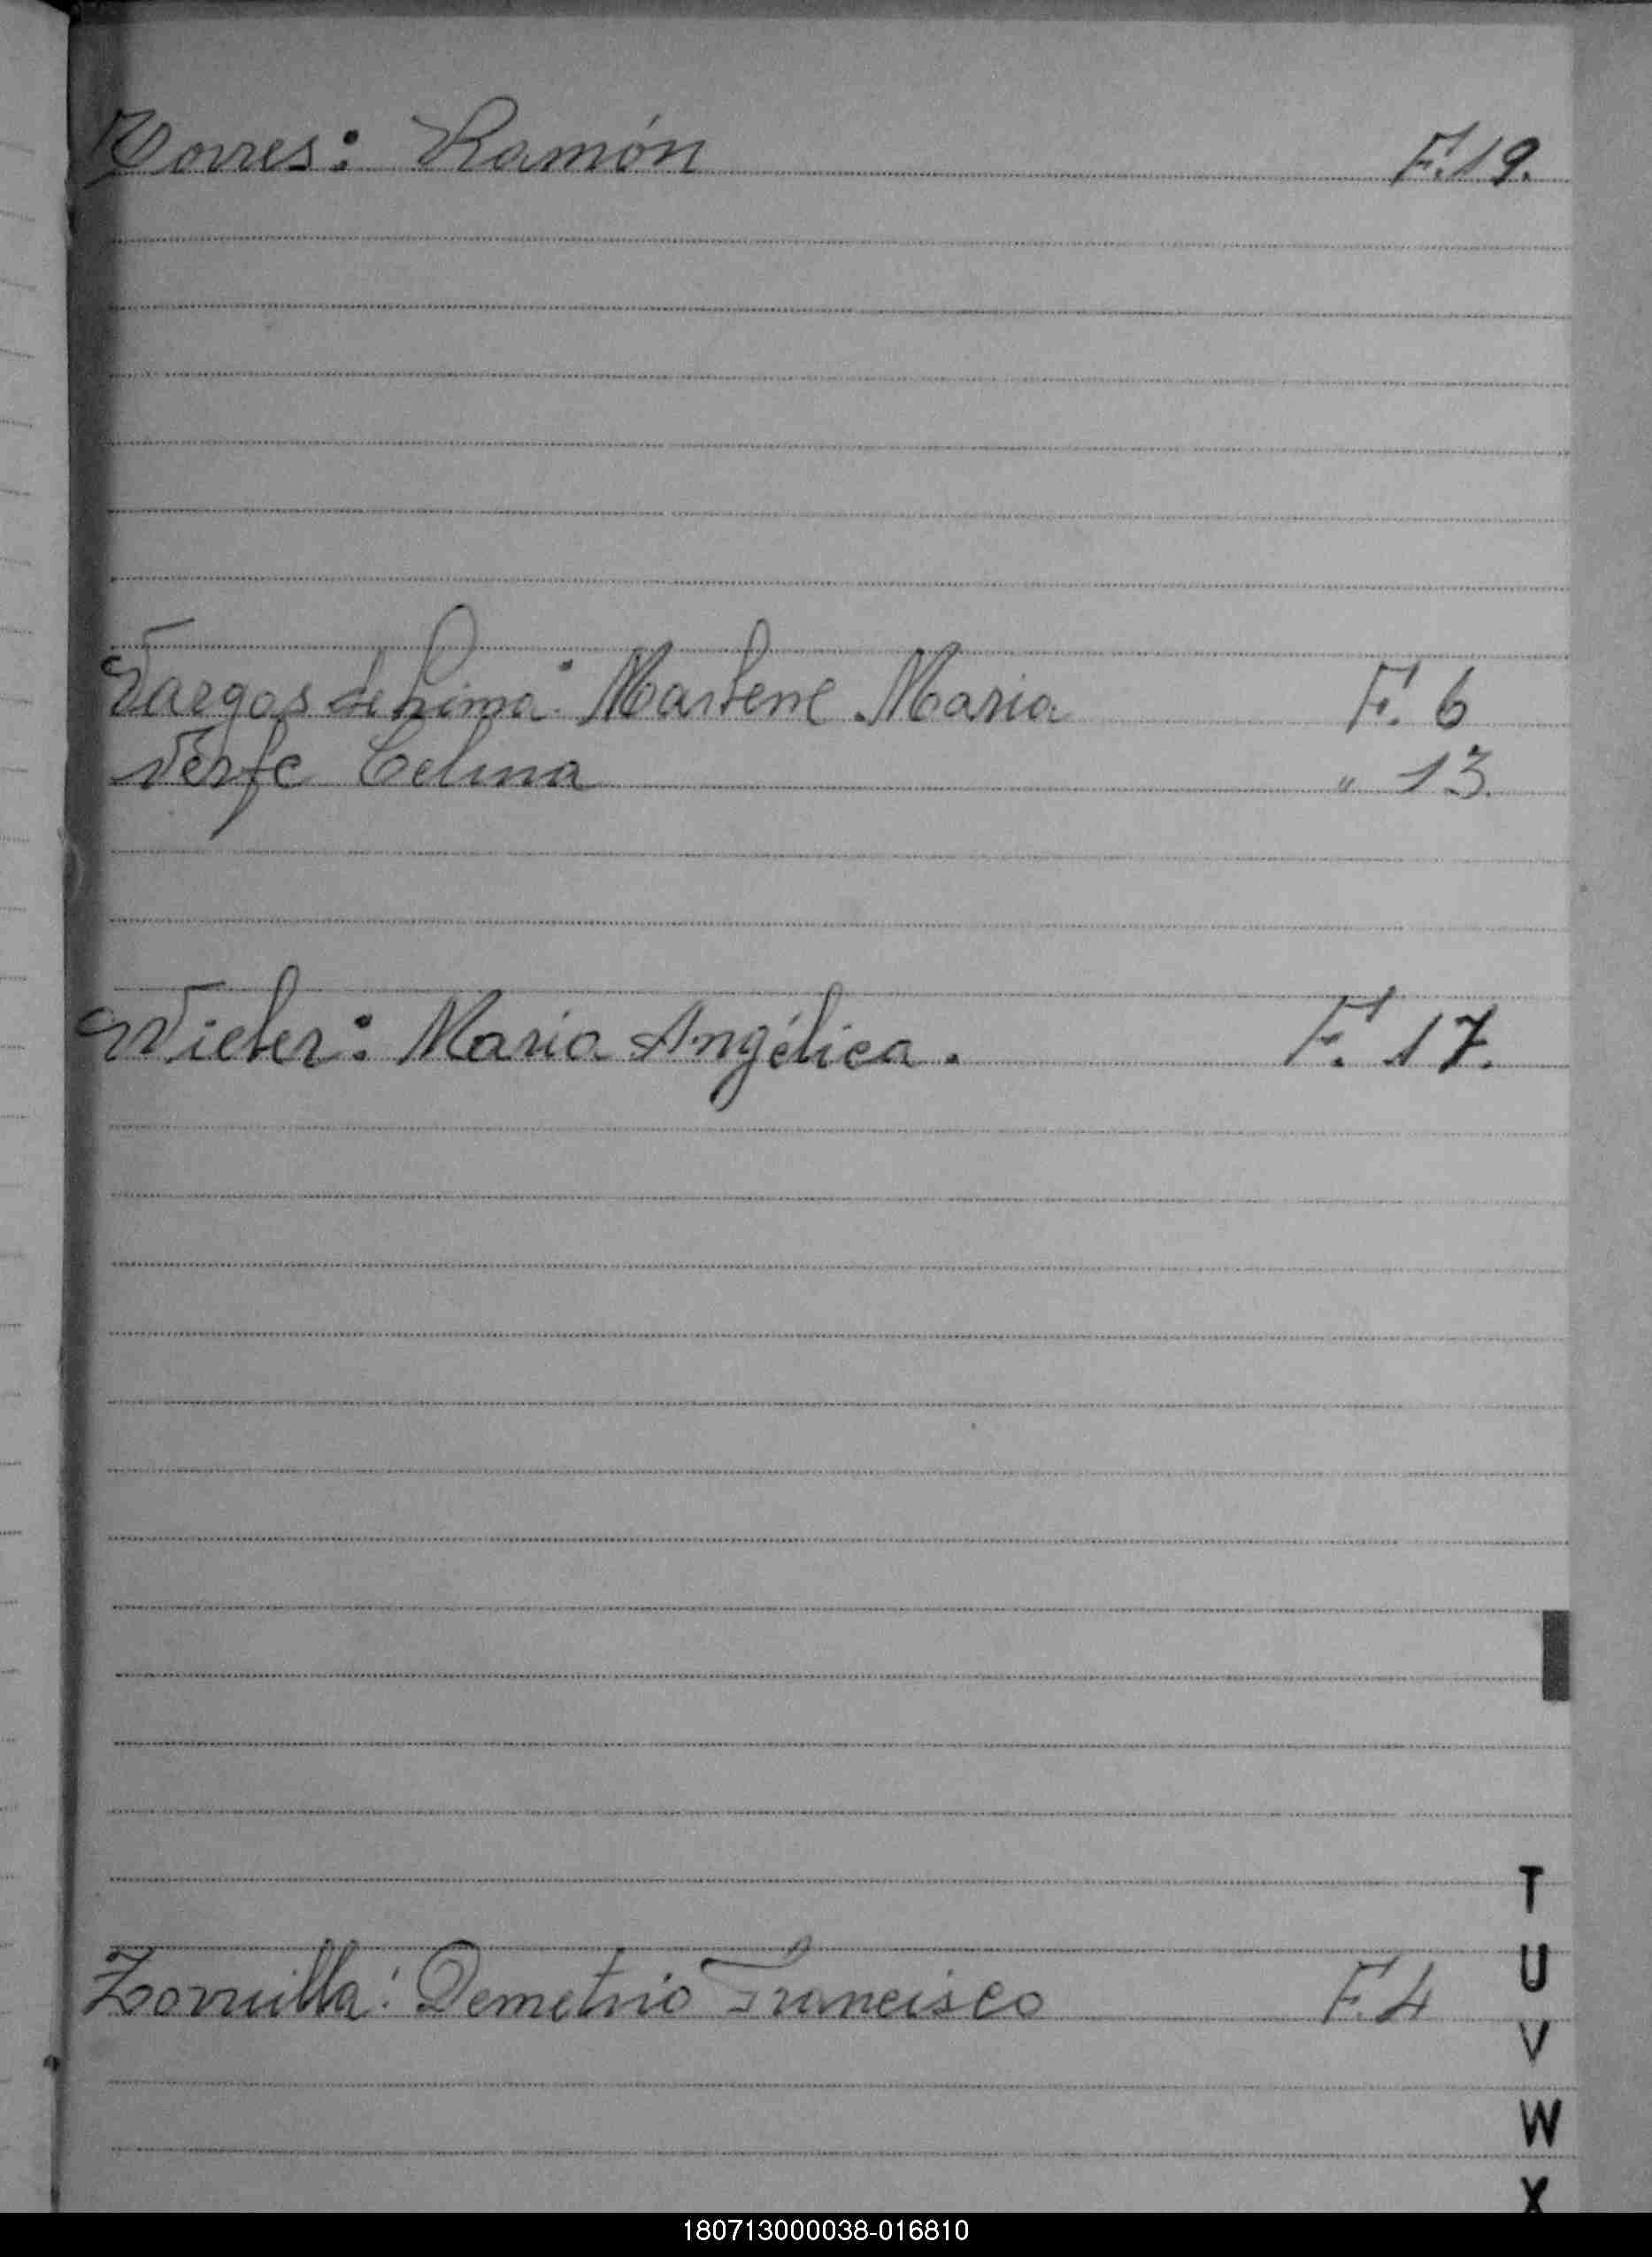 Torres: Ramón F. 19.
Vargas de Lima: Marlene Maria F. 6
Celina " 13.
Maria Angélica. F. 17.
Zorrilla: Demetrio Francisco F. 4
T
U
V
W
X
180713000038-016810